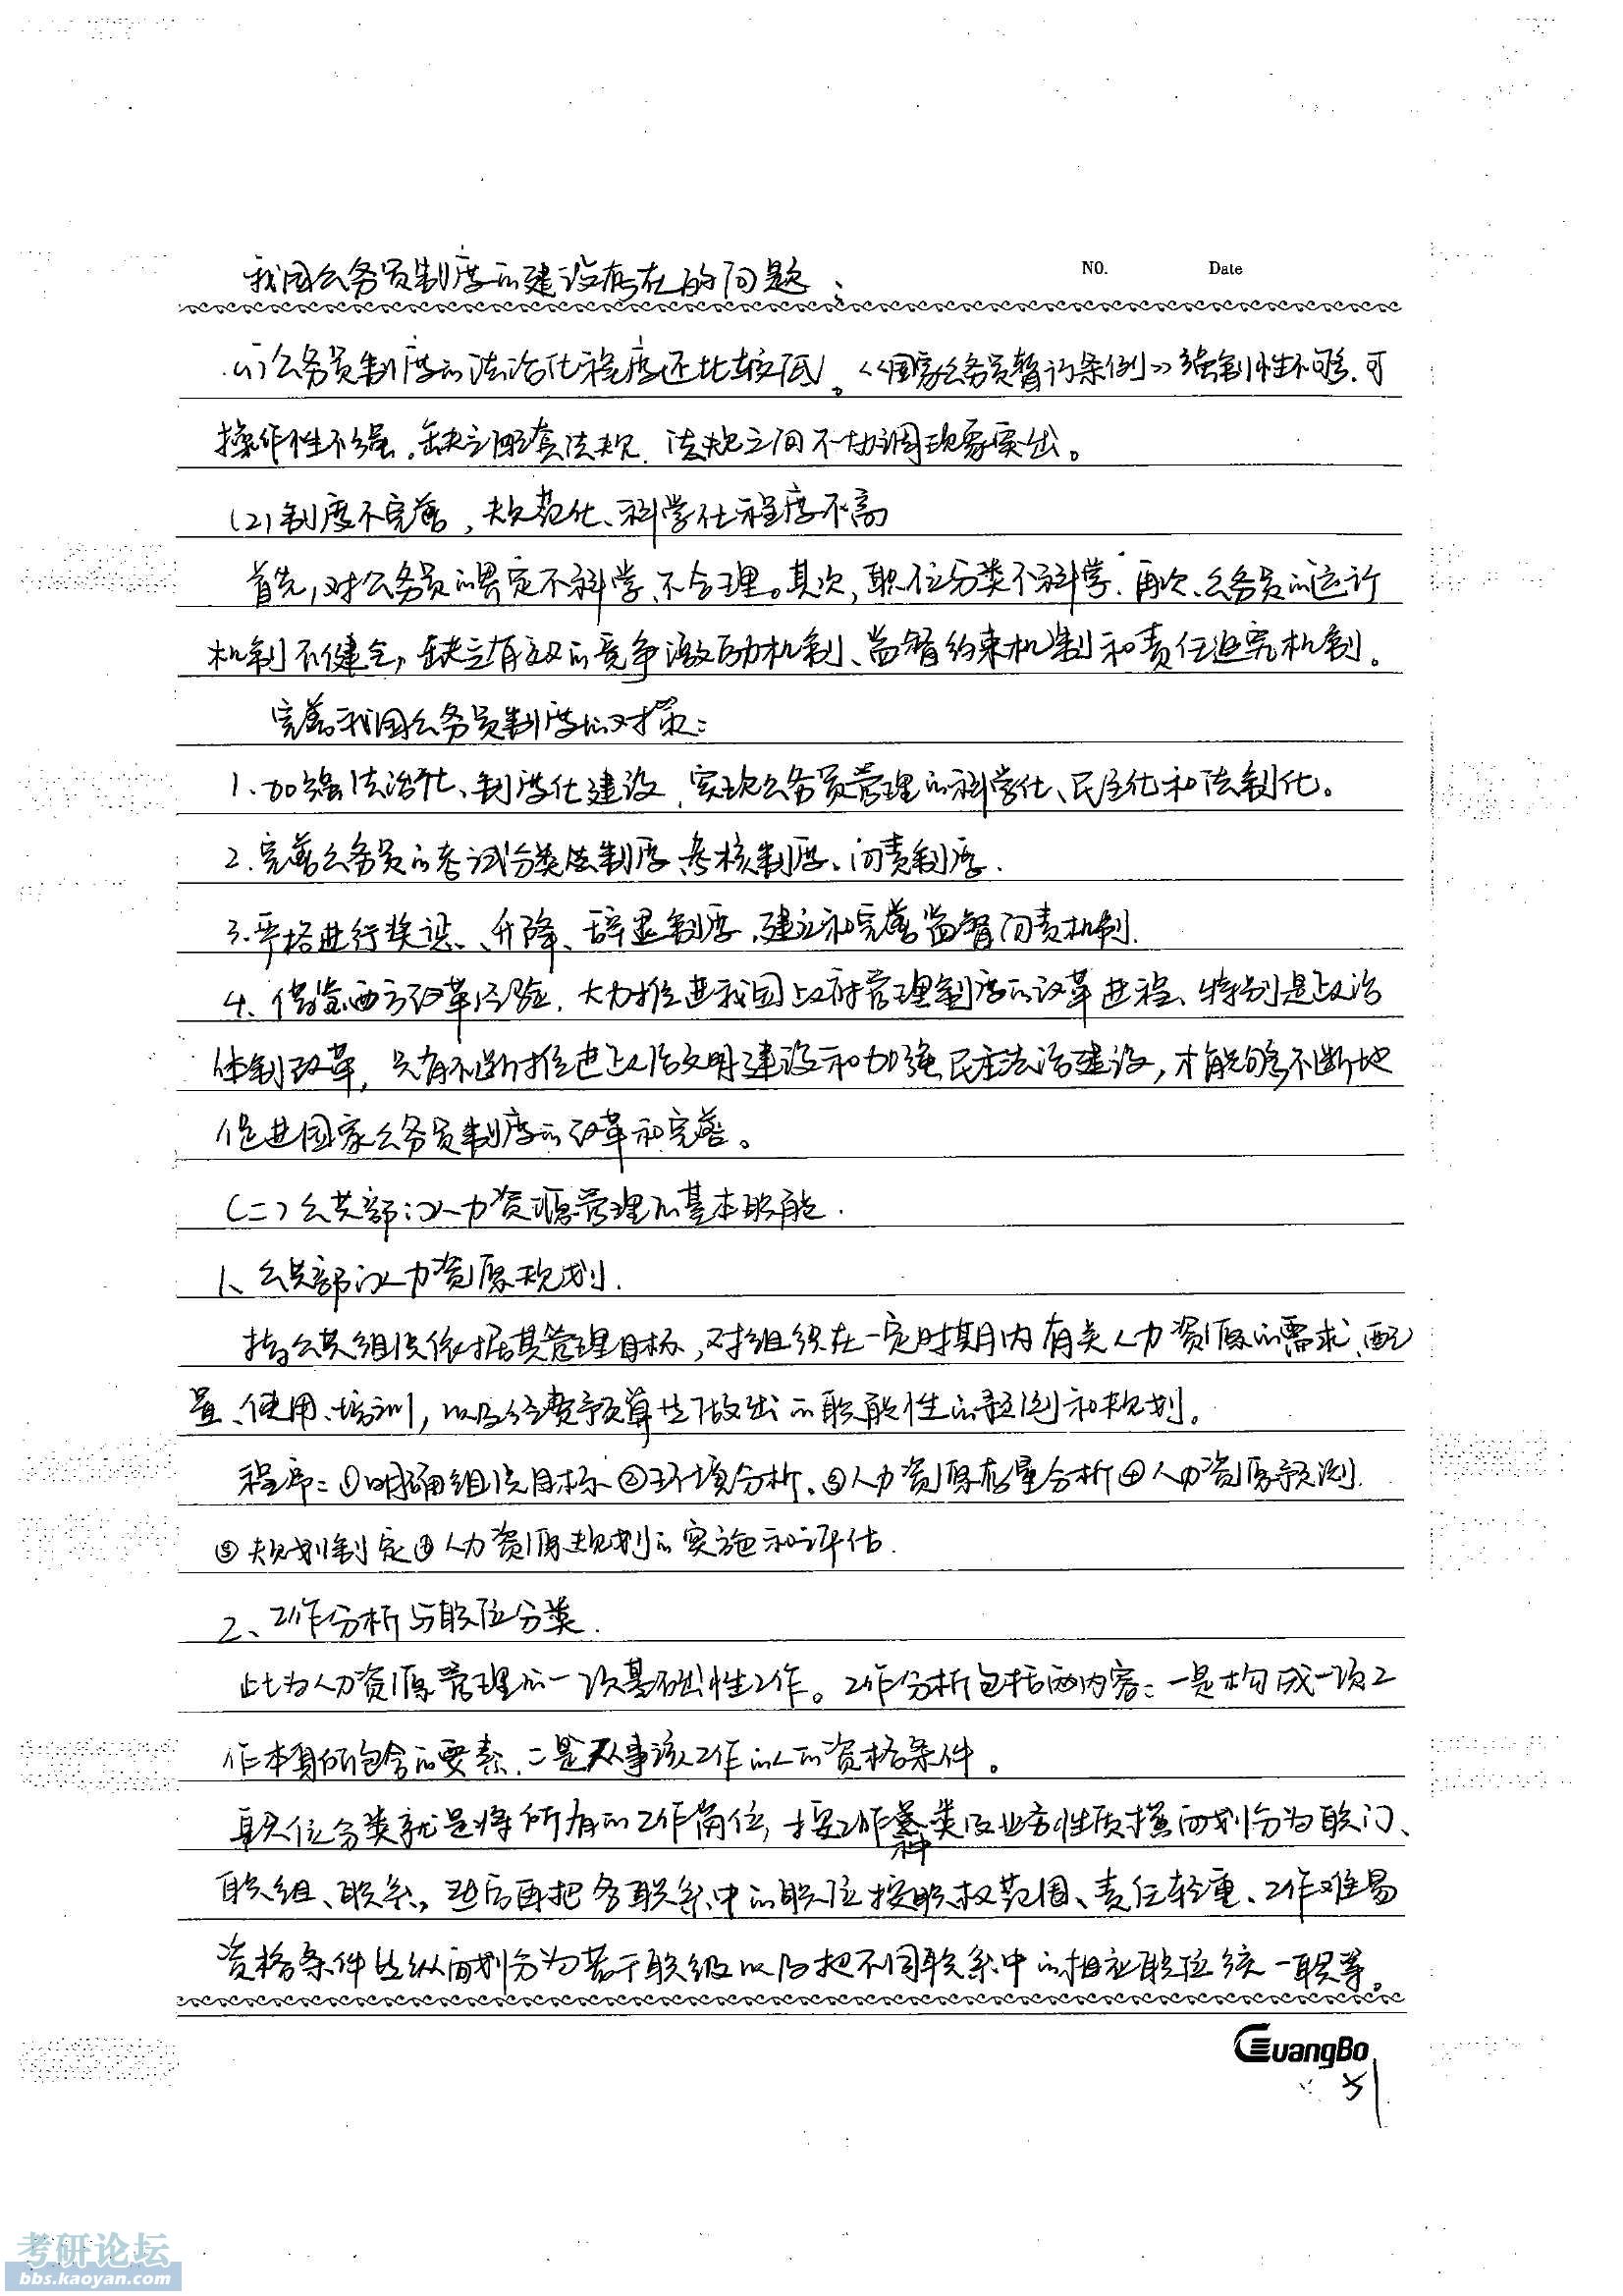 我国公务员制度的建设存在的问题：
NO. Date
(1)公务员制度的法治化程度还比较低。《国家公务员暂行条例》强制性不够、可
操作性不强，缺乏配套法规，法规之间不协调现象突出。
(2)制度不完善，规范化、科学化程度不高
首先，对公务员的界定不科学、不合理。其次，职位分类不科学．再次、公务员的运行
机制不健全，缺乏有效的竞争激励机制、监督约束机制和责任追究机制。
完善我国公务员制度的对策：
1.加强法治化、制度化建设，实现公务员管理的科学化、民主化和法制化。
2.完善公务员的考试分类法制度、考核制度、问责制度．
3.严格进行奖惩、升降、辞退制度，建立和完善监督问责机制．
4、借鉴西方改革经验，大力推进我国政府管理制度的改革进程、特别是政治
体制改革，只有不断推进政治文明建设和加强民主法治建设，才能够不断地
促进国家公务员制度的改革和完善。
(二)公共部门人力资源管理的基本职能．
1、公共部门人力资源规划．
指公共组织依据其管理目标，对组织在一定时期内有关人力资源的需求、配
置、使用、培训，以及经费预算等做出的职能性的预测和规划。
程序：①明确组织目标②环境分析、③人力资源存量分析④人力资源预测．
⑤规划制定⑥人力资源规划的实施和评估．
2、工作分析与职位分类．
此为人力资源管理的一项基础性工作。工作分析包括两内容：一是构成一项工
作本身所包含的要素，二是从事该工作的人的资格条件。
职位分类就是将所有的工作岗位，按工作种类及业务性质横向划分为职门、
职组、职系，然后再把各职系中的职位按职权范围、责任轻重、工作难易
资格条件等纵向划分为若干职级以及把不同职系中的相应职位统一职等。
GuangBo
考研论坛
bbs.kaoyan.com